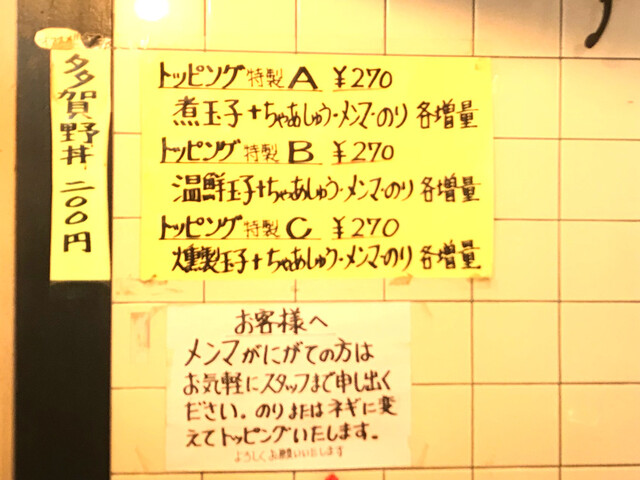 多賀野丼 二〇〇円
トッピング特製A ¥270
煮玉子+ちゃあしゅう・メンマ・のり 各増量
トッピング特製B ¥270
温鮮玉子+ちゃあしゅう・メンマ・のり 各増量
トッピング特製C ¥270
燻製玉子+ちゃあしゅう・メンマ・のり 各増量
お客様へ
メンマがにがての方は
お気軽にスタッフまで申し出く
ださい。のりまたはネギに変
えてトッピングいたします。
よろしくお願いいたします